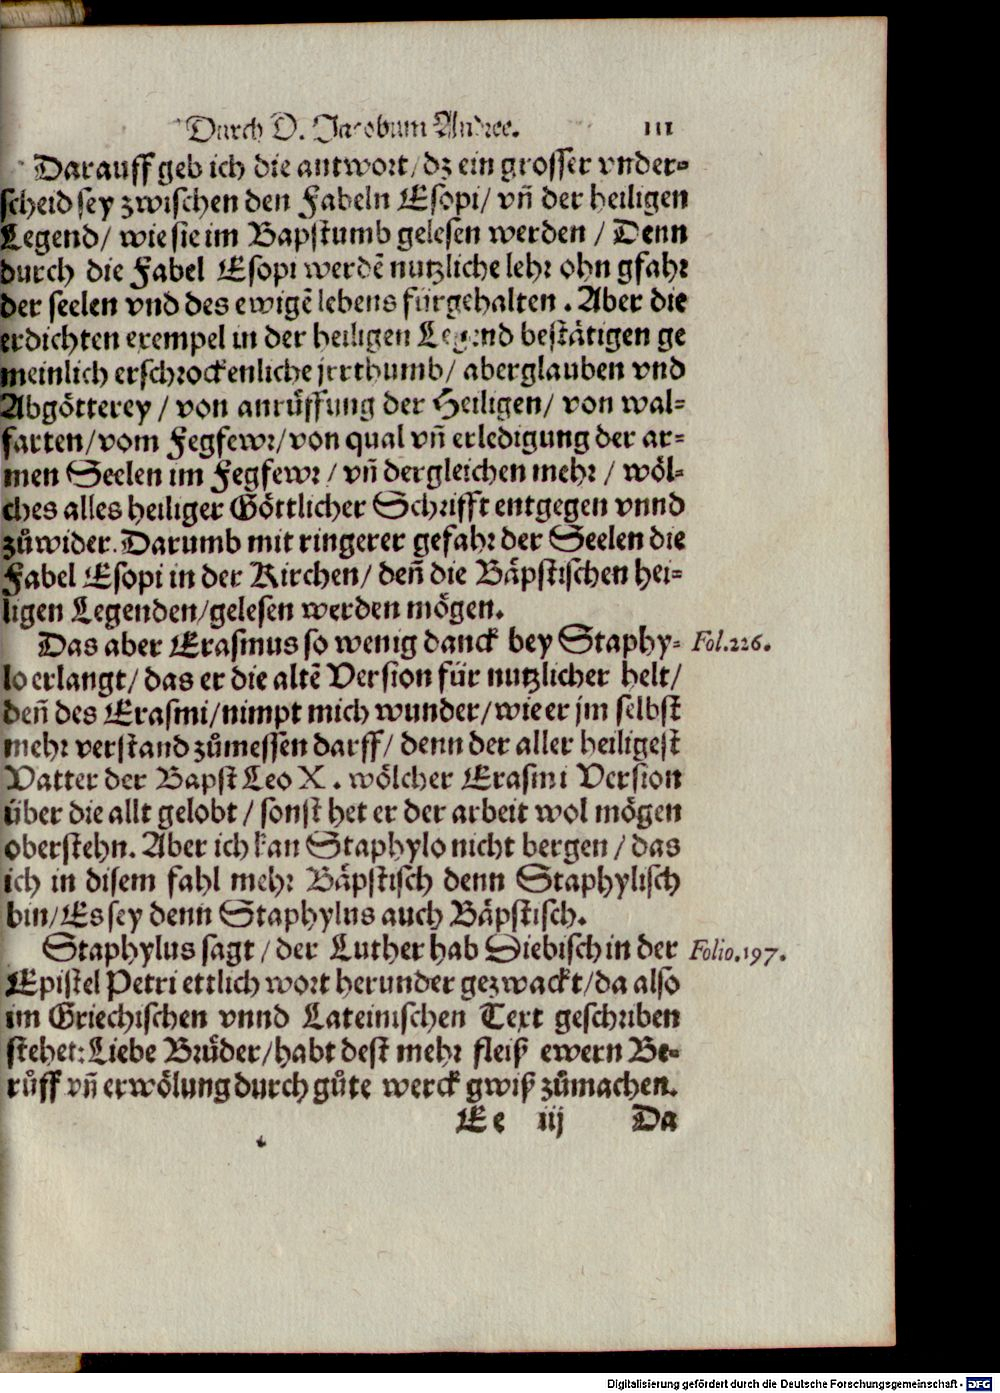 Durch D. Jacobum Andree. 111
Darauff geb ich die antwort/ dz ein grosser vnder-
scheid sey zwischen den Fabeln Esopi/ vñ der heiligen
Legend/ wie sie im Bapstumb gelesen werden / Denn
durch die Fabel Esopi werdē nutzliche lehr ohn gfahr
der seelen vnd des ewigē lebens fürgehalten. Aber die
erdichten exempel in der heiligen Legend bestätigen ge
meinlich erschrockenliche jrrthumb/ aberglauben vnd
Abgötterey / von anrůffung der Heiligen/ von wal-
farten/ vom Fegfewr/ von qual vñ erledigung der ar-
men Seelen im Fegfewr / vñ dergleichen mehr / wöl-
ches alles heiliger Göttlicher Schrifft entgegen vnnd
zůwider. Darumb mit ringerer gefahr der Seelen die
Fabel Esopi in der Kirchen/ deñ die Bäpstischen hei-
ligen Legenden/ gelesen werden mögen.
Das aber Erasmus so wenig danck bey Staphy- Fol.226.
lo erlangt/ das er die altē Version für nutzlicher helt/
deñ des Erasmi/ nimpt mich wunder/ wie er jm selbst
mehr verstand zůmessen darff/ denn der aller heiligest
Vatter der Bapst Leo X. wölcher Erasmi Version
über die allt gelobt / sonst het er der arbeit wol mögen
oberstehn. Aber ich kan Staphylo nicht bergen / das
ich in disem fahl mehr Bäpstisch denn Staphylisch
bin/ Es sey denn Staphylus auch Bäpstisch.
Staphylus sagt / der Luther hab Diebisch in der Folio.197.
Epistel Petri ettlich wort herunder gezwackt/ da also
im Griechischen vnnd Lateinischen Text geschriben
stehet: Liebe Brüder/ habt dest mehr fleiß ewern Be-
růff vñ erwölung durch gůte werck gwiß zůmachen.
Ee iij Da
Digitalisierung gefördert durch die Deutsche Forschungsgemeinschaft - DFG